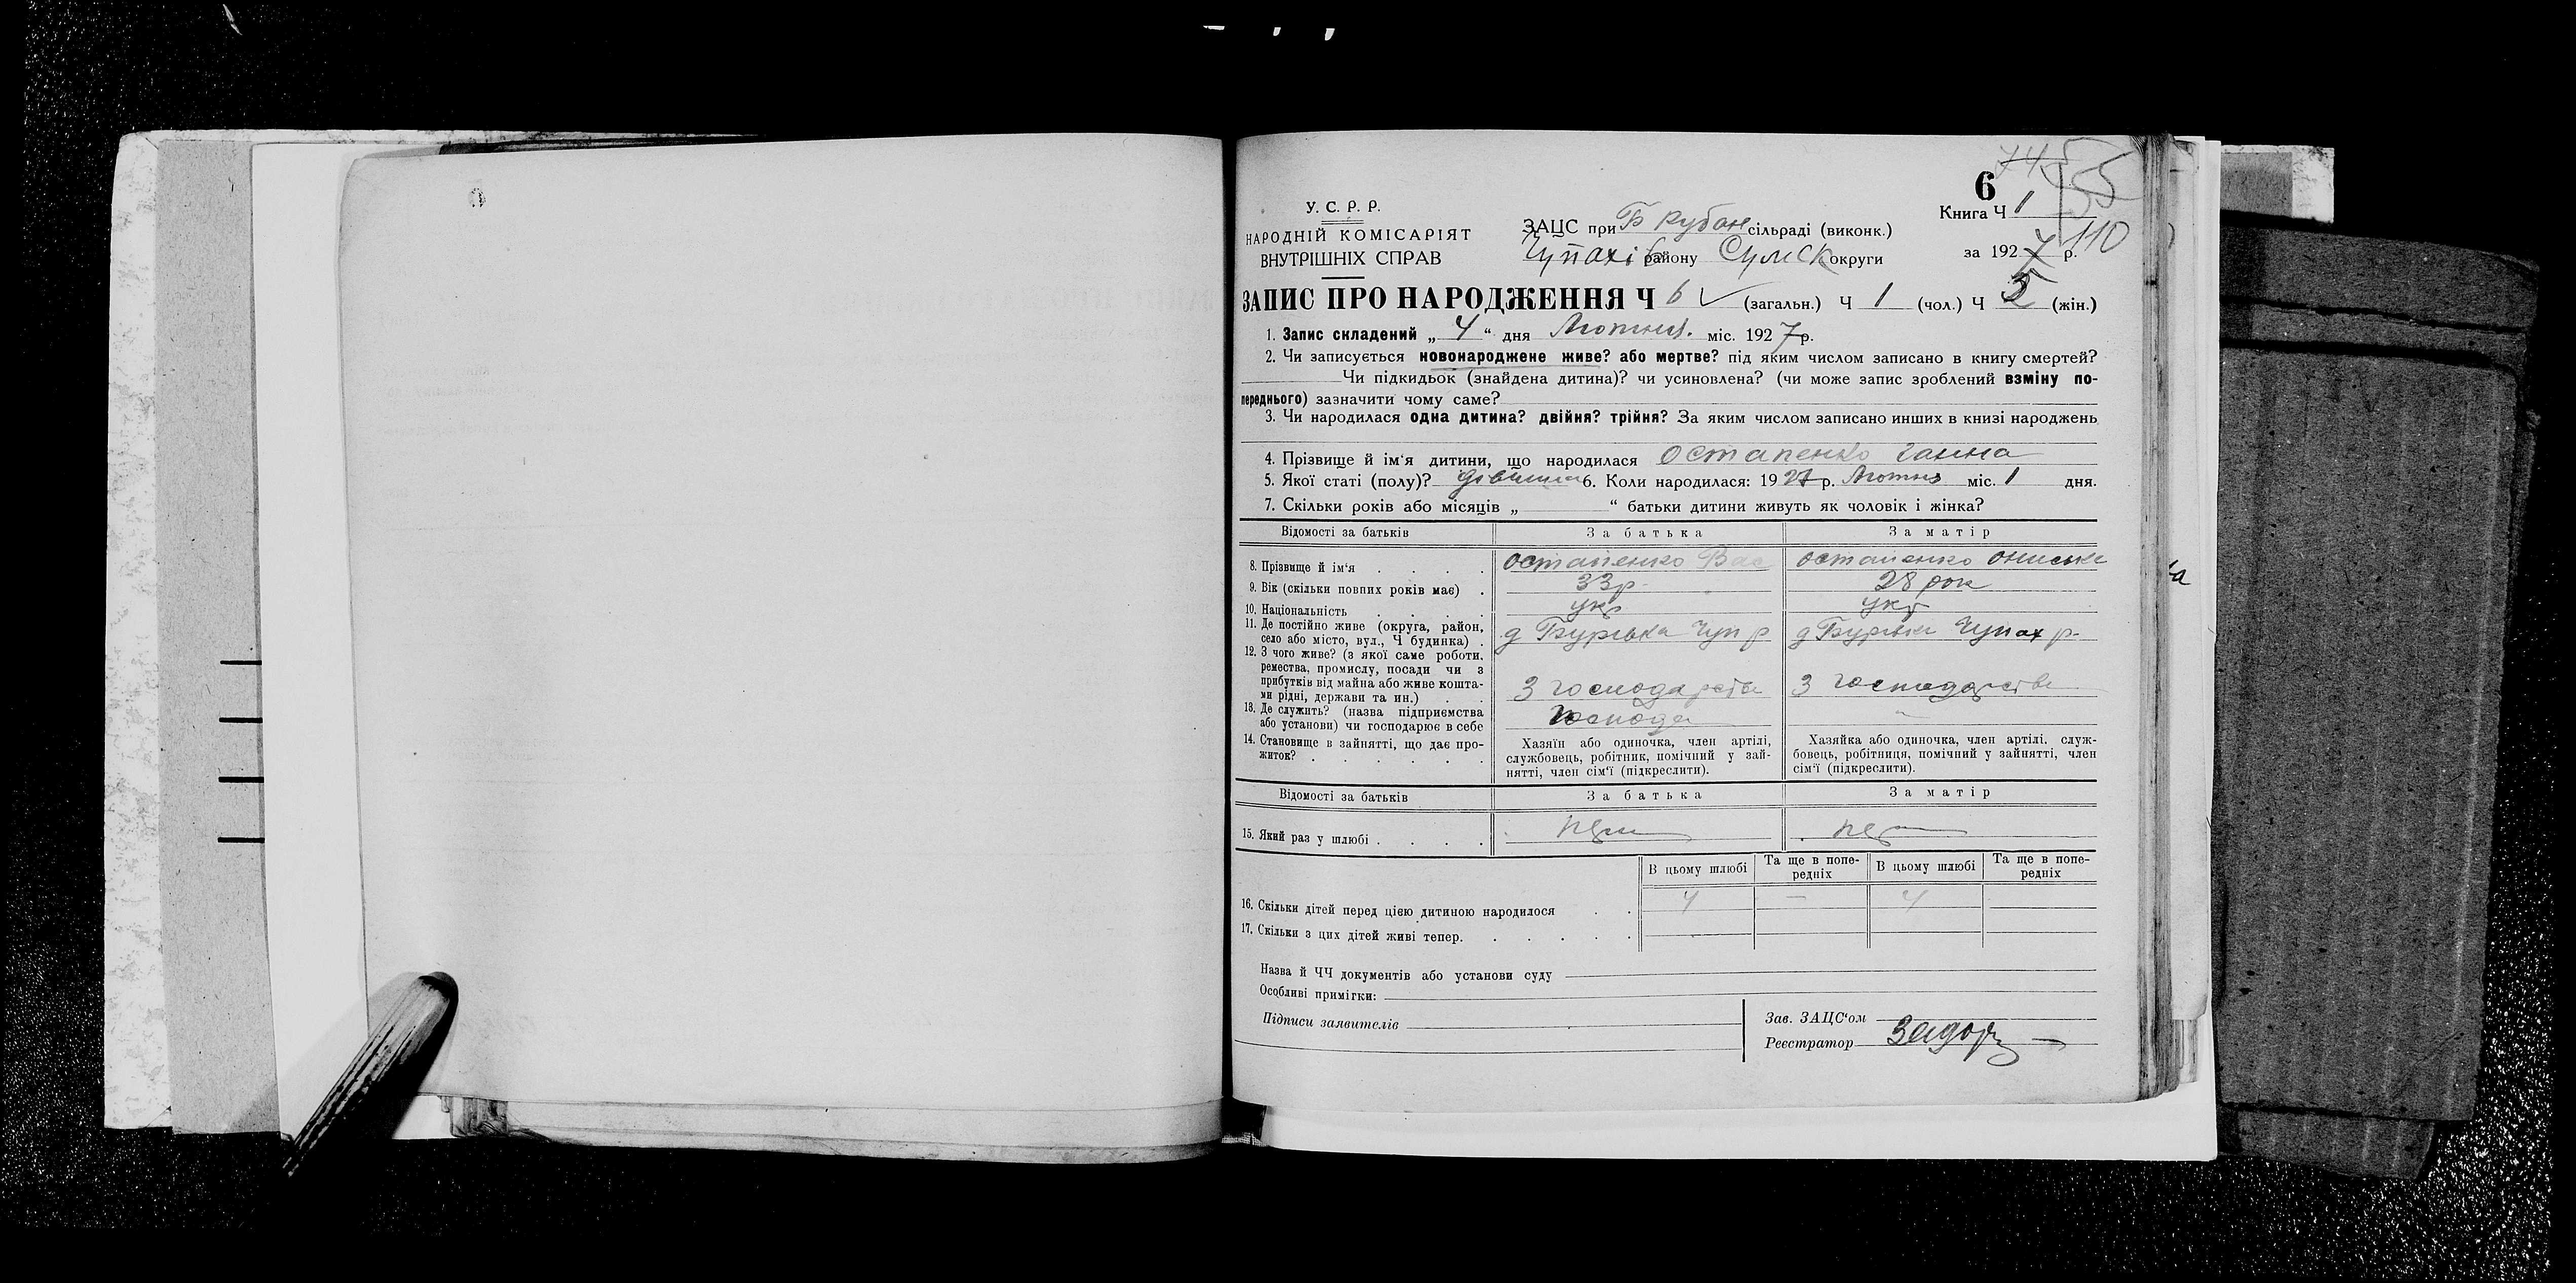 6
74
55
110
У. С. Р. Р.
НАРОДНІЙ КОМІСАРІЯТ
ВНУТРІШНІХ СПРАВ
ЗАЦС при Б Рубан сільраді (виконк.)
Чупахів району Сумск округи
Книга Ч 1
за 1927 р.
ЗАПИС ПРО НАРОДЖЕННЯ Ч 6 (загальн.) Ч 1 (чол.) Ч 5 (жін.)
1. Запис складений „ 4 “ дня Лютня. міс. 1927 р.
2. Чи записується новонароджене живе? або мертве? під яким числом записано в книгу смертей?
Чи підкидьок (знайдена дитина)? чи усиновлена? (чи може запис зроблений взміну по-
переднього) зазначити чому саме?
3. Чи народилася одна дитина? двійня? трійня? За яким числом записано инших в книзі народжень
4. Прізвище й ім‘я дитини, що народилася Остапенко Ганна
5. Якої статі (полу)? дівчина 6. Коли народилася: 1927 р. Лютня міс. 1 дня.
7. Скільки років або місяців „ “ батьки дитини живуть як чоловік і жінка?
Відомості за батьків За батька За матір
8. Прізвище й ім‘я Остапенко Вас Остапенко Ониська
9. Вік (скільки повних років має) 33 р. 28 рок
10. Національність укр укр
11. Де постійно живе (округа, район,
село або місто, вул., Ч будинка) д Бугрівка Чуп р д Бугрівка Чупах р.
12. З чого живе? (з якої саме роботи,
ремества, промислу, посади чи з
прибутків від майна або живе кошта-
ми рідні, держави та ин.) З господарства З господарства
13. Де служить? (назва підприємства
або установи) чи господарює в себе Господа "
14. Становище в зайнятті, що дає про-
житок?
Хазяїн або одиночка, член артілі,
службовець, робітник, помічний у зай-
нятті, член сім‘ї (підкреслити).
Хазяйка або одиночка, член артілі, служ-
бовець, робітниця, помічний у зайнятті, член
сім‘ї (підкреслити).
Відомості за батьків За батька За матір
15. Який раз у шлюбі перш пер
В цьому шлюбі Та ще в попе-редніх В цьому шлюбі Та ще в попе-редніх
16. Скільки дітей перед цією дитиною народилося 4 — 4
17. Скільки з цих дітей живі тепер.
Назва й ЧЧ документів або установи суду
Особливі примітки:
Підписи заявителів
Зав. ЗАЦС‘ом
Реєстратор Задор